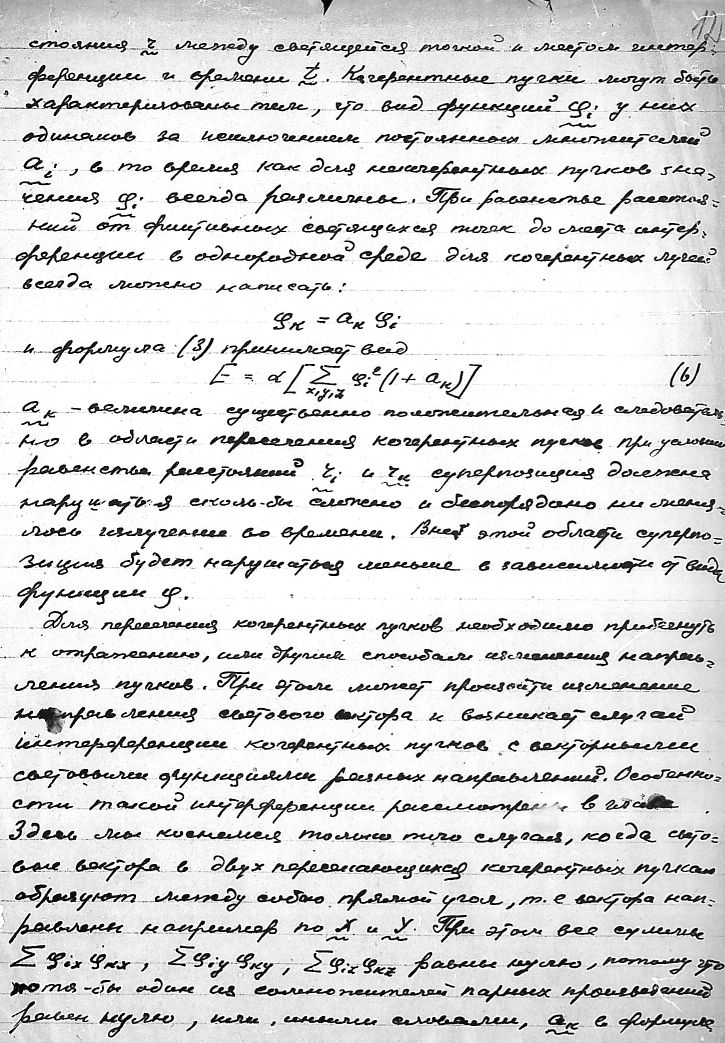 12
стояния r между светящейся точкой и местом интер-
ференции и времени t. Когерентные пучки могут быть
характеризованы тем, что вид функций φi у них
одинаков за исключением постоянных множителей
ai, в то время как для некогерентных пучков зна-
чения φi всегда различны. При равенстве расстоя-
ний от фиктивных светящихся точек до места интер-
ференции в однородной среде для когерентных лучей
всегда можно написать:
φк = aк φi
и формула (3) принимает вид
E = α [ Σ x,y,z φi² (1 + aк) ] (6)
aк – величина существенно положительная и следователь-
но в области пересечения когерентных пучков при условии
равенства расстояний ri и rк суперпозиция должна
нарушаться сколь-бы сложно и беспорядочно ни меня-
лось излучение во времени. Вне этой области суперпо-
зиция будет нарушаться меньше в зависимости от вида
функции φ.
Для пересечения когерентных пучков необходимо прибегнуть
к отражению, или другим способам изменения направ-
ления пучков. При этом может произойти изменение
направления светового вектора и возникает случай
интерференции когерентных пучков с векторными
световыми функциями разных направлений. Особенно-
сти такой интерференции рассмотрены в главе .
Здесь мы коснемся только того случая, когда свето-
вые вектора в двух пересекающихся когерентных пучках
образуют между собою прямой угол, т.е вектора нап-
равлены например по X и Y. При этом все суммы
Σφix φкx, Σφiy φкy, Σφiz φкz равны нулю, потому что
хотя-бы один из сомножителей парных произведений
равен нулю, или, иными словами, aк в формуле